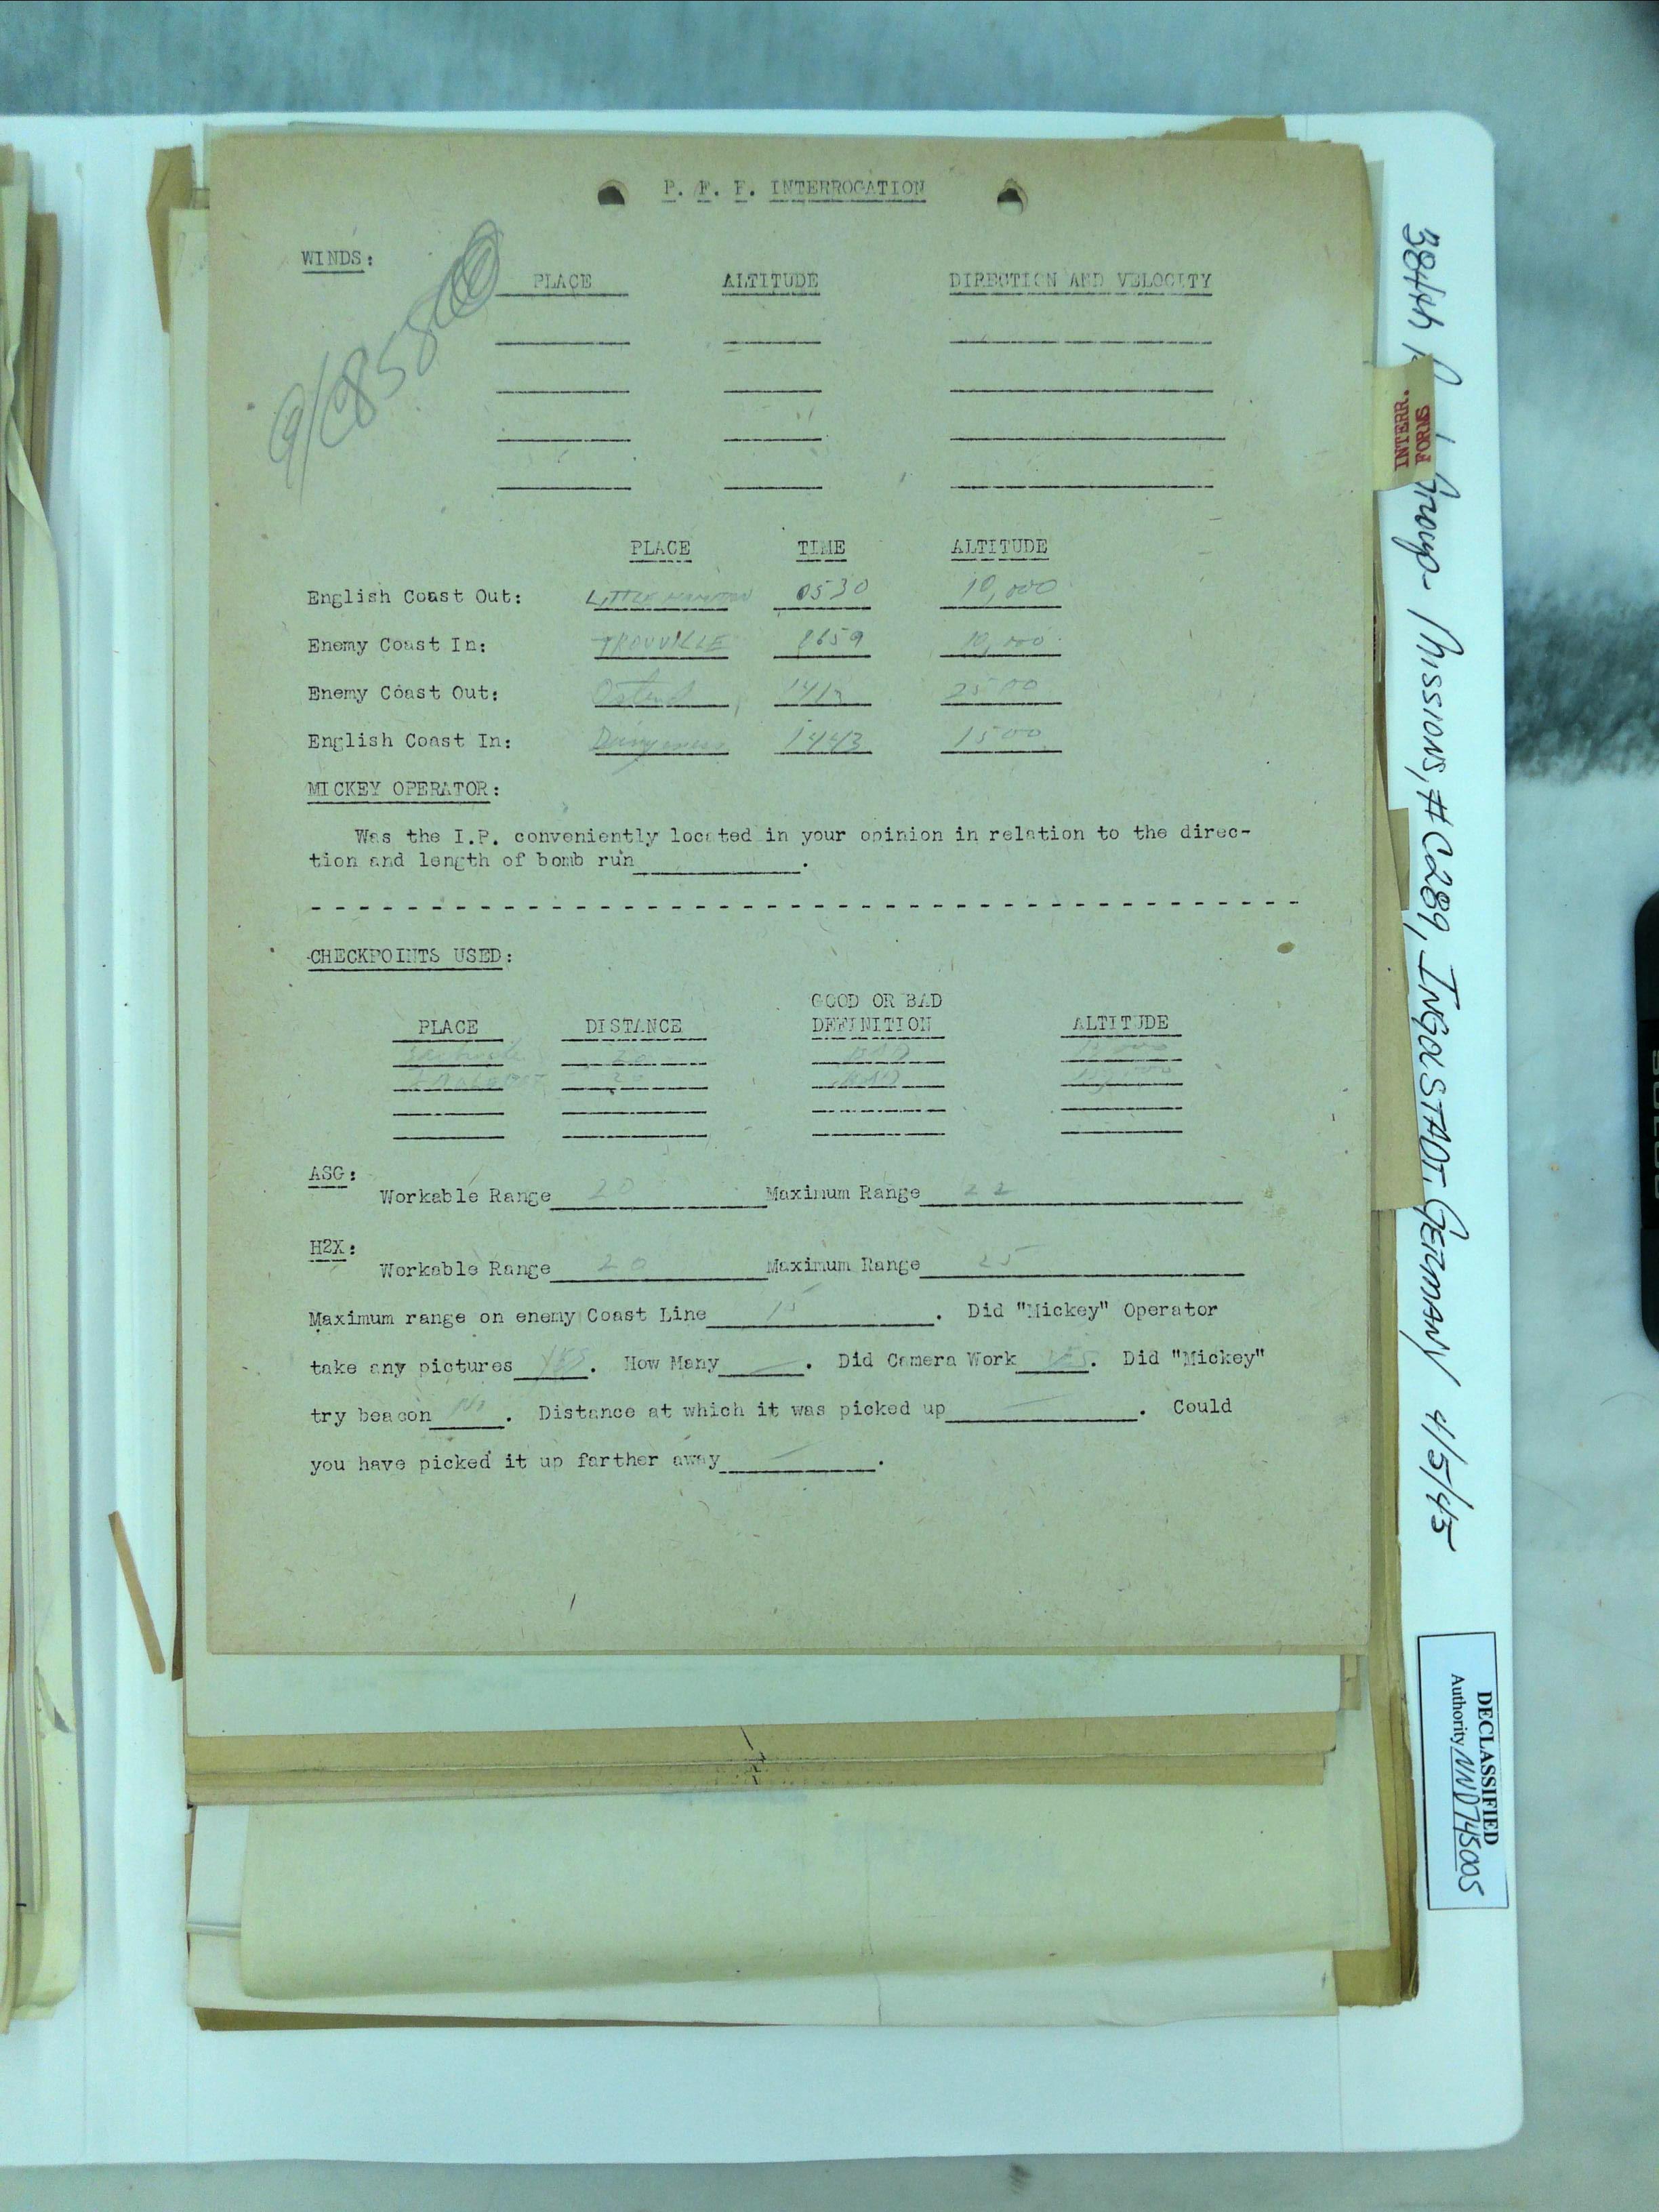 P. F. F. INTERROGATION
WINDS:
PLACE ALTITUDE DIRECTION AND VELOCITY
PLACE TIME ALTITUDE
English Coast Out: 0530 10,000
Enemy Coast In: TROUVILLE 10,000
Enemy Coast Out: Ostend 2500
English Coast In: 1443 1500
MICKEY OPERATOR:
Was the I.P. conveniently located in your opinion in relation to the direc-
tion and length of bomb run .
CHECKPOINTS USED:
GOOD OR BAD
PLACE DISTANCE DEFINITION ALTITUDE
20 BAD
20
ASG:
Workable Range 20 Maximum Range 22
H2X:
Workable Range 20 Maximum Range 25
Maximum range on enemy Coast Line 15. Did "Mickey" Operator
take any pictures YES. How Many —. Did Camera Work YES. Did "Mickey"
try beacon No. Distance at which it was picked up —. Could
you have picked it up farther away —.
INTERR.
FORMS
384th Group - Missions, # 289, INGOLSTADT, GERMANY 4/5/45
DECLASSIFIED
Authority NND745005